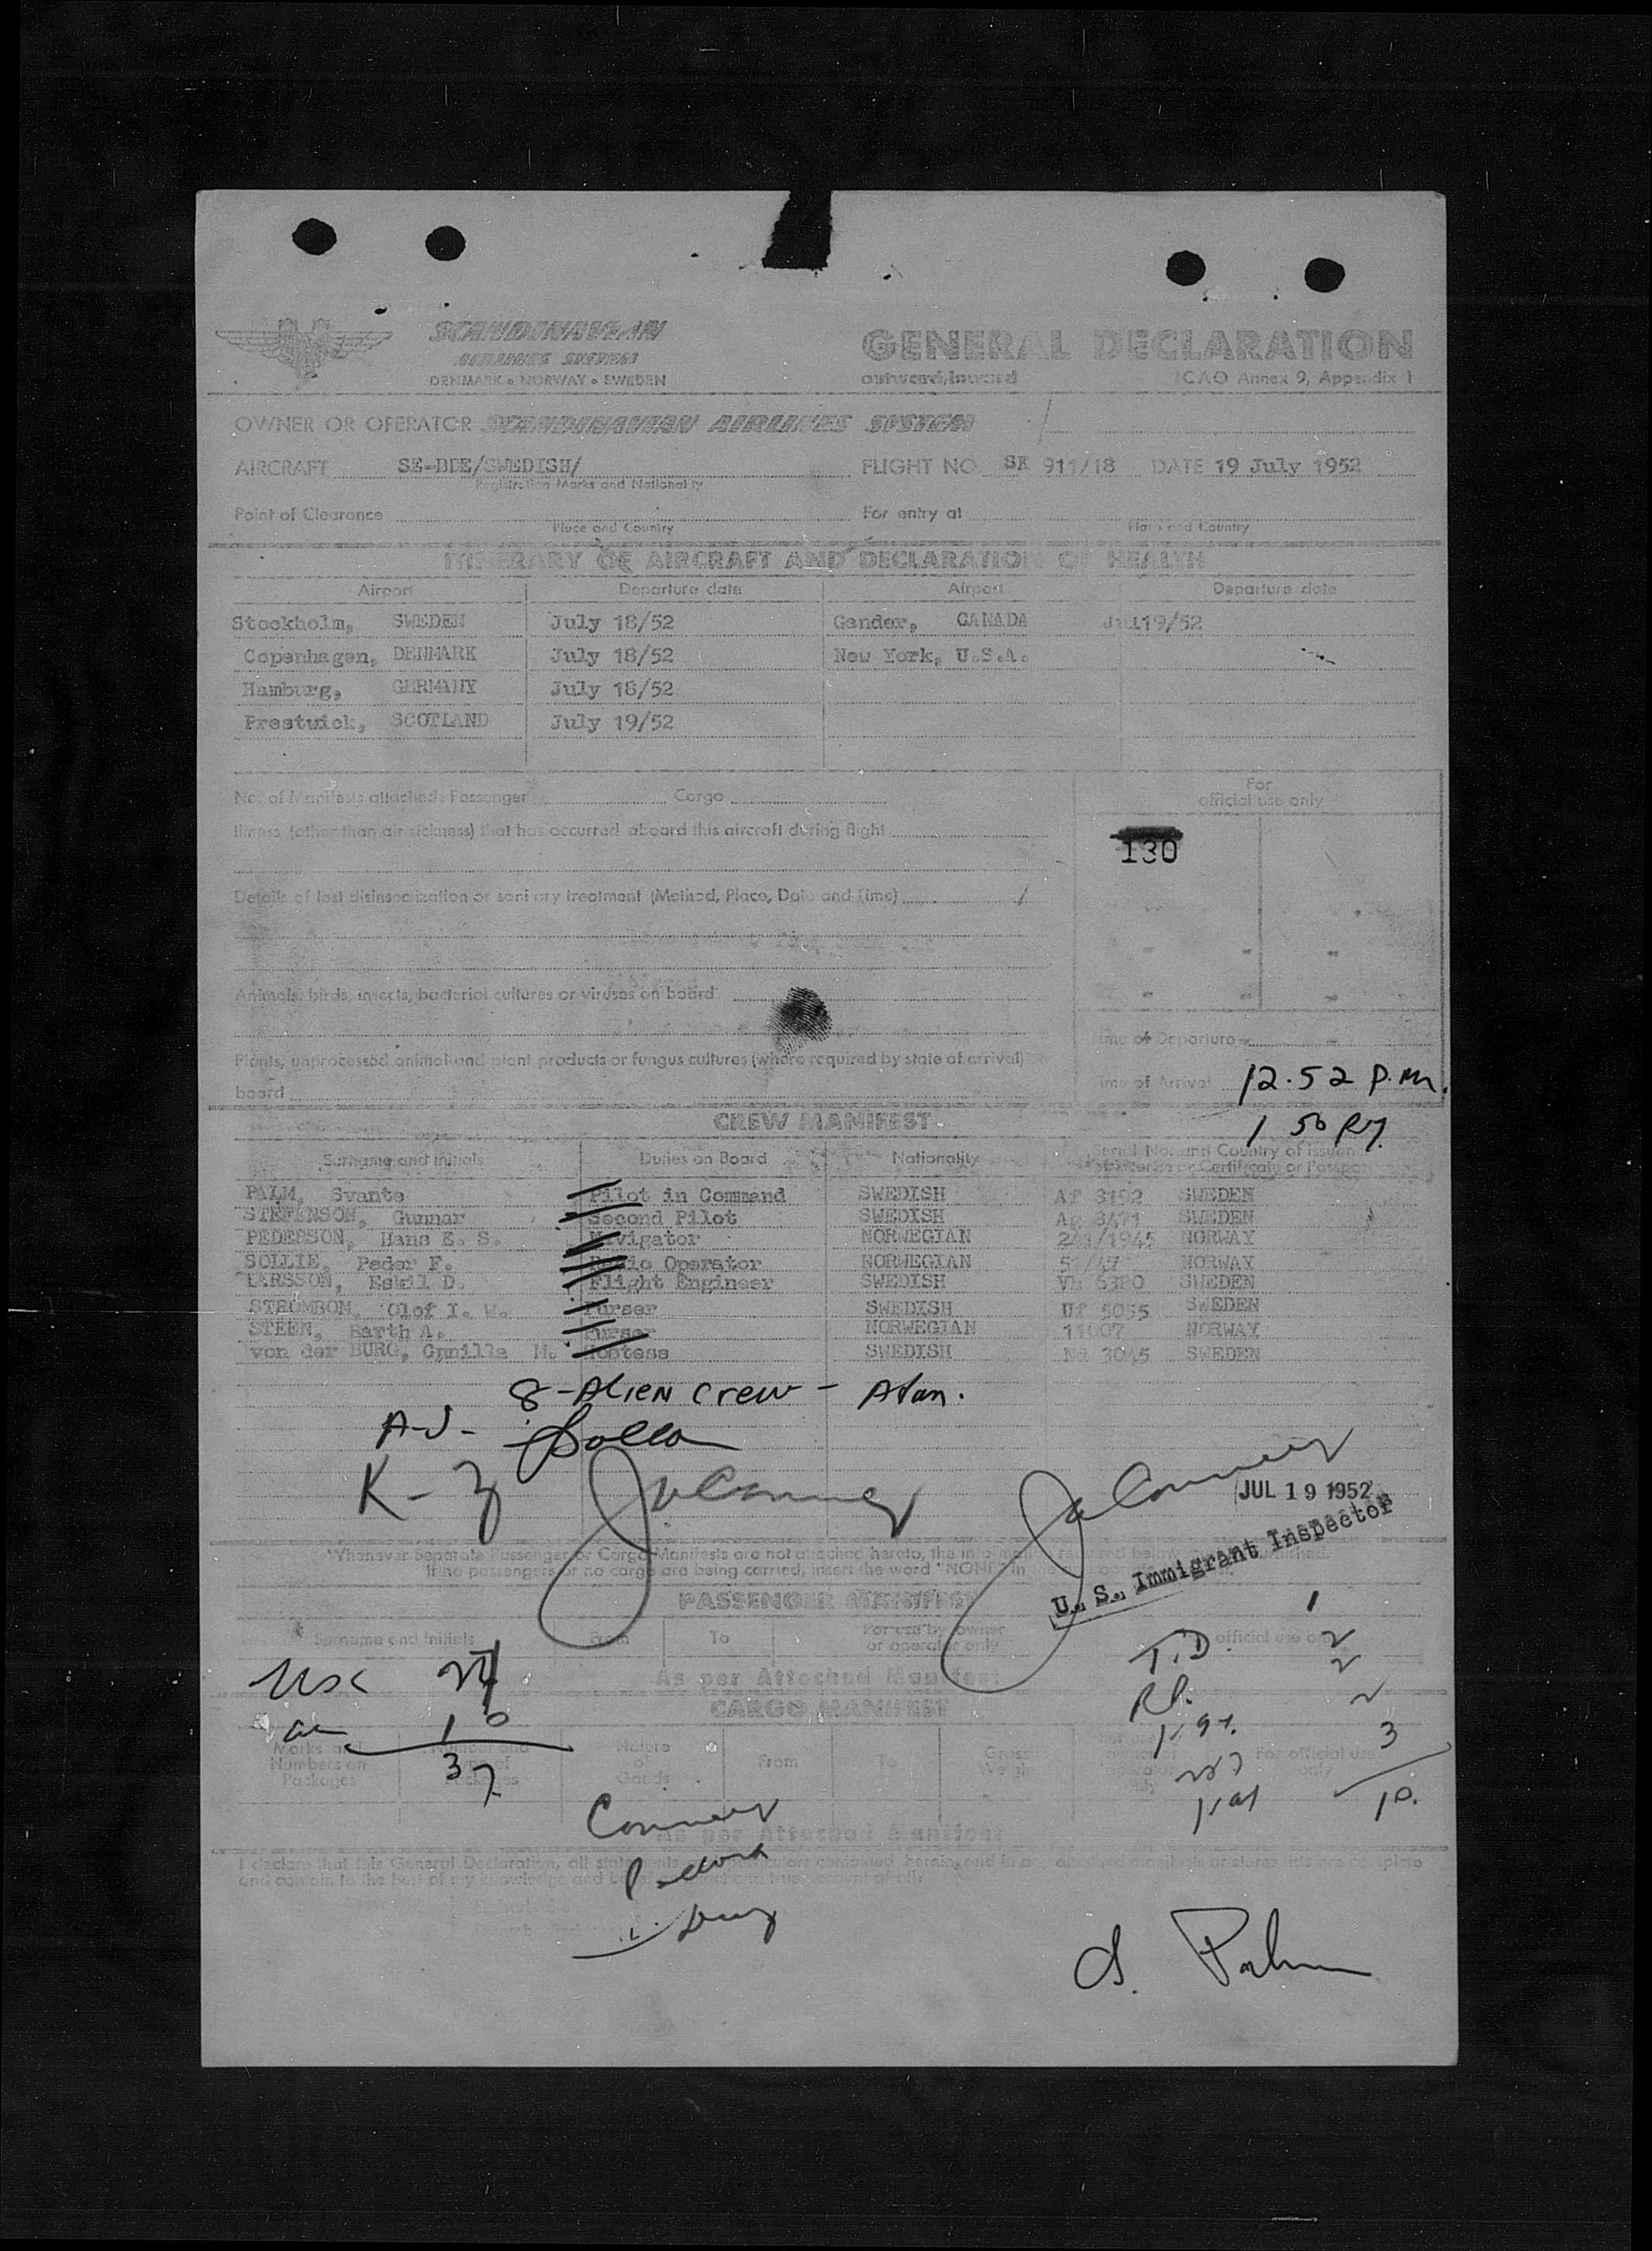 SCANDINAVIAN
AIRLINES SYSTEM
DENMARK • NORWAY • SWEDEN
GENERAL DECLARATION
outward/inward
ICAO Annex 9, Appendix 1
OWNER OR OPERATOR SCANDINAVIAN AIRLINES SYSTEM
AIRCRAFT SE-BDE/SWEDISH/ FLIGHT NO. SK 911/18 DATE 19 July 1952
Registration Marks and Nationality
Point of Clearance For entry at
Place and Country Place and Country
ITINERARY OF AIRCRAFT AND DECLARATION OF HEALTH
Airport Departure date Airport Departure date
Stockholm, SWEDEN July 18/52 Gander, CANADA Jul19/52
Copenhagen, DENMARK July 18/52 New York, U.S.A.
Hamburg, GERMANY July 18/52
Prestwick, SCOTLAND July 19/52
No. of Manifests attached: Passenger Cargo
For
official use only
Illness (other than air sickness) that has occurred aboard this aircraft during flight
130
Details of last disinsectization or sanitary treatment (Method, Place, Date and Time)
Animals, birds, insects, bacterial cultures or viruses on board
Time of Departure
Plants, unprocessed animal and plant products or fungus cultures (where required by state of arrival)
board
Time of Arrival 12.52 P.M.
CREW MANIFEST
1 50
Surname and Initials Duties on Board Nationality Serial No. and Country of issuen
Certificate or Passpo
PALM, Svante Pilot in Command SWEDISH Af 3192 SWEDEN
STEFENSON, Gunnar Second Pilot SWEDISH Ag 3471 SWEDEN
PEDERSON, Hans E. S. Navigator NORWEGIAN 241/1945 NORWAY
SOLLIE, Peder F. Radio Operator NORWEGIAN 51/47 NORWAY
LARSSON, Eskil D. Flight Engineer SWEDISH Vh 6380 SWEDEN
STROMBOM, Olof I. W. Purser SWEDISH Uf 5055 SWEDEN
STEEN, Barth A. Purser NORWEGIAN 11007 NORWAY
von der BURG, Gunilla M. Hostess SWEDISH Nd 3045 SWEDEN
8 - Alien Crew - Adm.
A-J-
K-3
JUL 19 1952
U. S. Immigrant Inspector
Whenever Separate Passenger or Cargo Manifests are not attached hereto, the
If no passengers or no cargo are being carried, insert the word "NONE" in
PASSENGER MANIFEST
Surname and Initials From To For use by owner
or operator only
official use only
1
T.D. 2
2
As per Attached Manifest
USC 27
CARGO MANIFEST
2
10
3
37
Marks and
Numbers on
Packages
Number and
Type of
Packages
Nature
of
Goods
From To Gross
Weight
For official use
only
10.
Conner
As per Attached Manifest
I declare that this General Declaration, all
contained herein, and in
and contain to the best of my knowledge and
S. Palm